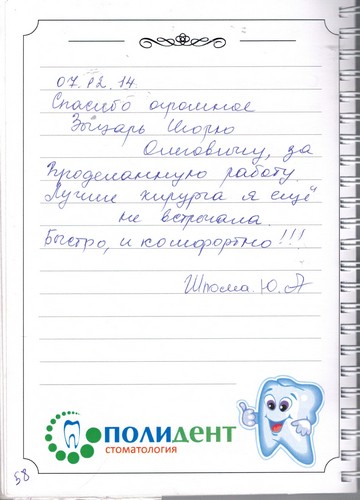 07.12.14.
Спасибо огромное
Зыцарь Игорю
Олеговичу, за
Проделанную работу
Лучше хирурга я ещё
не встречала.
Быстро, и комфортно!!!
Ю. А
ПОЛИДЕНТ
СТОМАТОЛОГИЯ
58